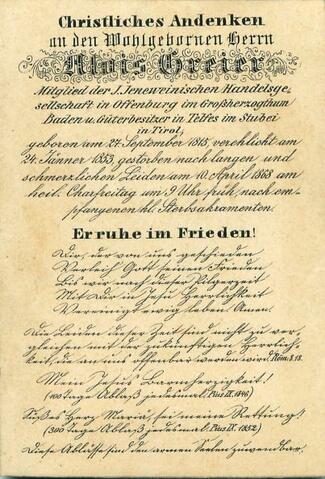 Christliches Andenken
an den Wohlgebornen Herrn
Alois Greier
Mitglied der J. Jeneweinischen Handelsge-
sellschaft in Offenburg im Großherzogthum
Baden u. Güterbesitzer in Telfes im Stubei
in Tirol,
geboren am 27. September 1815, verehlicht am
24. Jänner 1853, gestorben nach langen und
schmerzlichen Leiden am 10. April 1868 am
heil. Charfreitag um 9 Uhr früh, nach em-
pfangenen hl. Sterbsakramenten.
Er ruhe im Frieden!
Dir, der von uns geschieden
Verleih' Gott seinen Frieden
Bis wir nach dieser Pilgerzeit
Mit Dir in Jesu Herrlichkeit
Vereinigt ewig leben. Amen.
Die Leiden dieser Zeit sind nicht zu ver-
gleichen mit der zukünftigen Herrlich-
keit, die an uns offenbar werden wird. Röm. 8.18.
Mein Jesus Barmherzigkeit!
(100 Tage Ablaß jedesmal. Pius IX. 1846)
Süßes Herz Mariä, sei meine Rettung!
(300 Tage Ablaß jedesmal. Pius IX. 1852)
Diese Ablässe sind den armen Seelen zuwendbar.